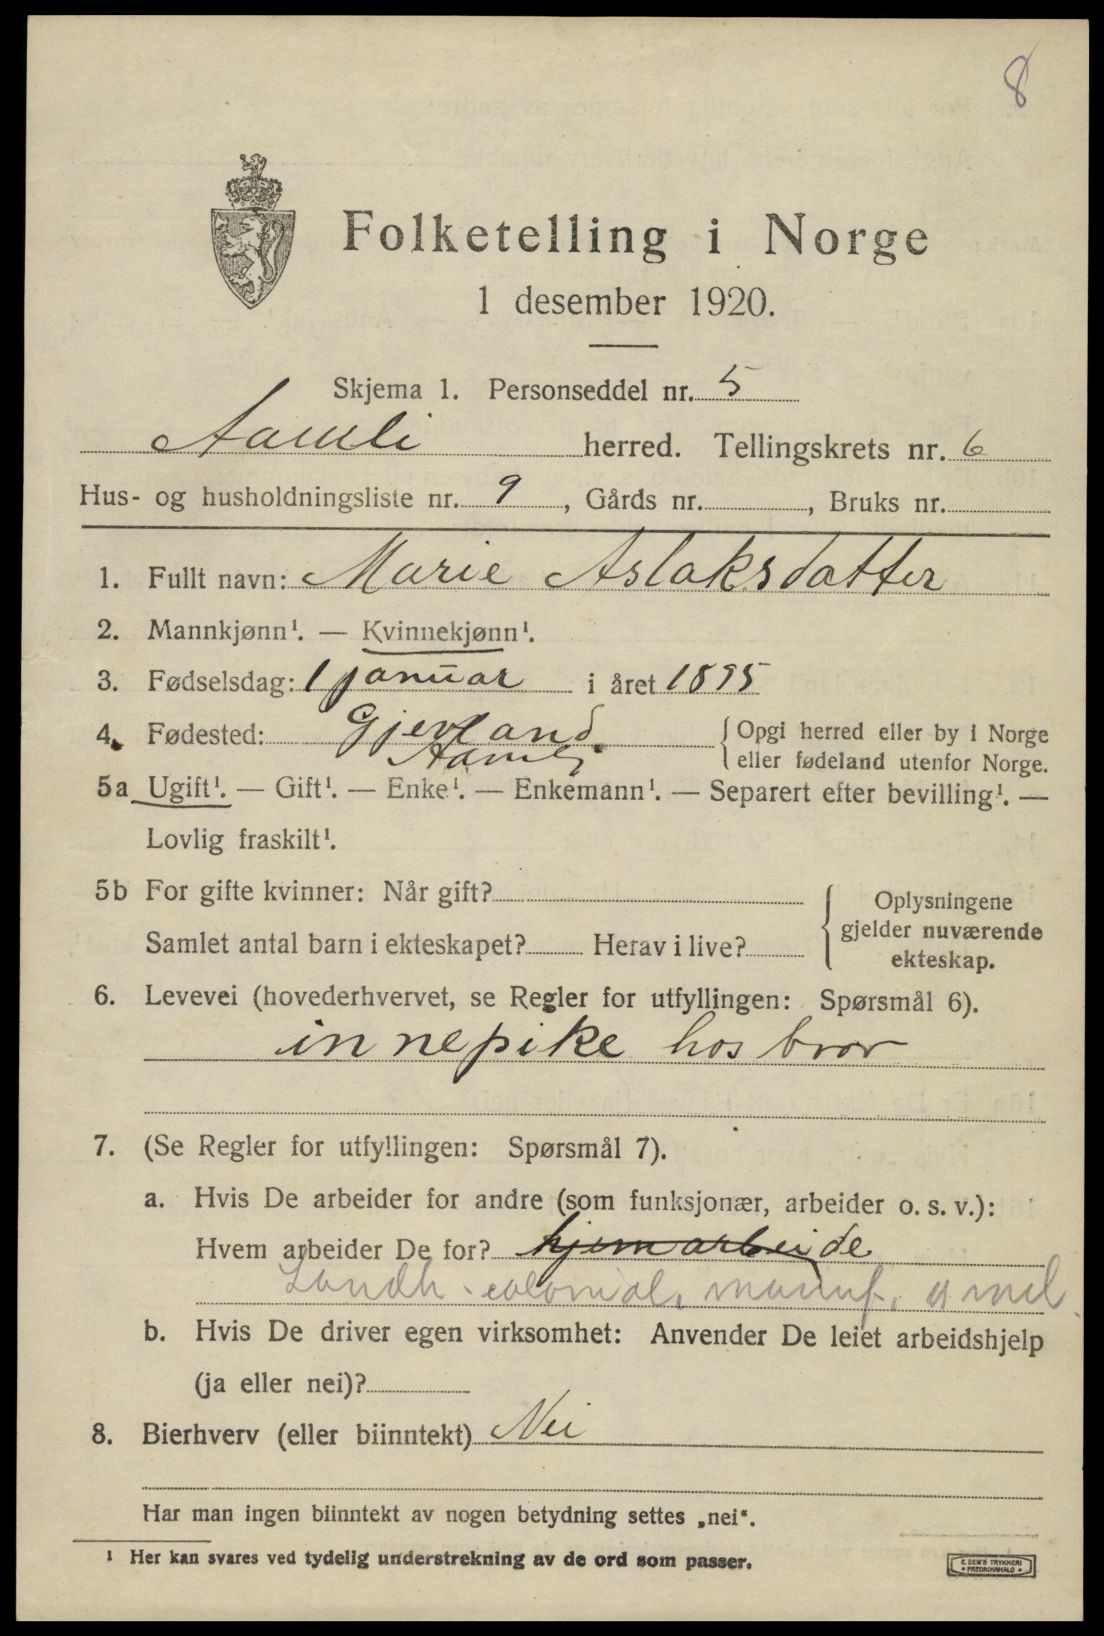 8
Folketelling i Norge
1 desember 1920.
Skjema 1. Personseddel nr. 5
Aamli herred. Tellingskrets nr. 6
Hus- og husholdningsliste nr. 9, Gårds nr. , Bruks nr.
1. Fullt navn: Marie Aslaksdatter
2. Mannkjønn¹. — Kvinnekjønn¹.
3. Fødselsdag: 1 januar i året 1895
4. Fødested: Gjevland. { Opgi herred eller by i Norge
Aamli eller fødeland utenfor Norge.
5a Ugift¹. — Gift¹. — Enke¹. — Enkemann¹. — Separert efter bevilling¹. —
Lovlig fraskilt¹.
5b For gifte kvinner: Når gift? { Oplysningene
gjelder nuværende
Samlet antal barn i ekteskapet? Herav i live?
ekteskap.
6. Levevei (hovederhvervet, se Regler for utfyllingen: Spørsmål 6).
innepike hos bror
7. (Se Regler for utfyllingen: Spørsmål 7).
a. Hvis De arbeider for andre (som funksjonær, arbeider o. s. v.):
Hvem arbeider De for? hjemarbeide
Landh. colonial, manuf. og mel
b. Hvis De driver egen virksomhet: Anvender De leiet arbeidshjelp
(ja eller nei)?
8. Bierhverv (eller biinntekt) Nei
Har man ingen biinntekt av nogen betydning settes „nei“.
¹ Her kan svares ved tydelig understrekning av de ord som passer.
E. SEM'S TRYKKERI
• FREDRIKSHALD •